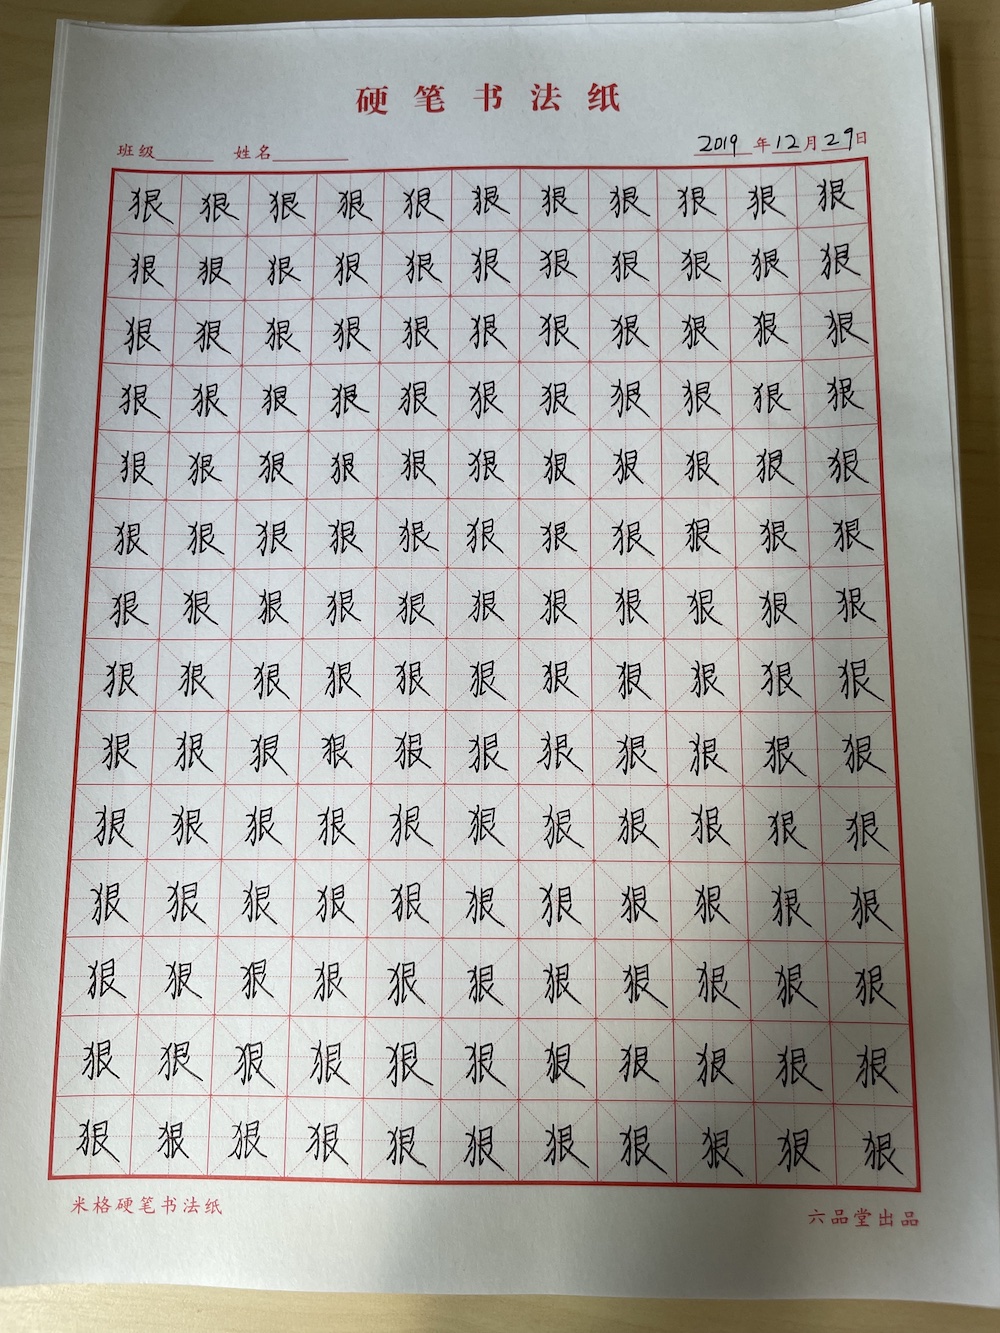 硬笔书法纸
班级 姓名 2019年12月29日
狠狠狠狠狠狠狠狠狠狠狠
狠狠狠狠狠狠狠狠狠狠狠
狠狠狠狠狠狠狠狠狠狠狠
狠狠狠狠狠狠狠狠狠狠狠
狠狠狠狠狠狠狠狠狠狠狠
狠狠狠狠狠狠狠狠狠狠狠
狠狠狠狠狠狠狠狠狠狠狠
狠狠狠狠狠狠狠狠狠狠狠
狠狠狠狠狠狠狠狠狠狠狠
狠狠狠狠狠狠狠狠狠狠狠
狠狠狠狠狠狠狠狠狠狠狠
狠狠狠狠狠狠狠狠狠狠狠
狠狠狠狠狠狠狠狠狠狠狠
狠狠狠狠狠狠狠狠狠狠狠
米格硬笔书法纸
六品堂出品